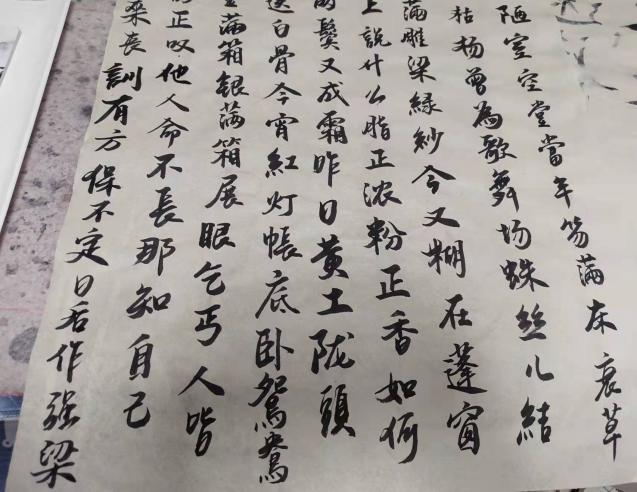 陋室空堂當年笏滿床衰草
枯杨曾為歌舞场蛛絲儿結
滿雕梁緑紗今又糊在蓬窗
上說什么脂正浓粉正香如何
两鬓又成霜昨日黄土陇頭
送白骨今宵紅灯帳底卧鴛鴦
金滿箱银滿箱展眼乞丐人皆
正叹他人命不長那知自己
来丧訓有方保不定日后作强梁